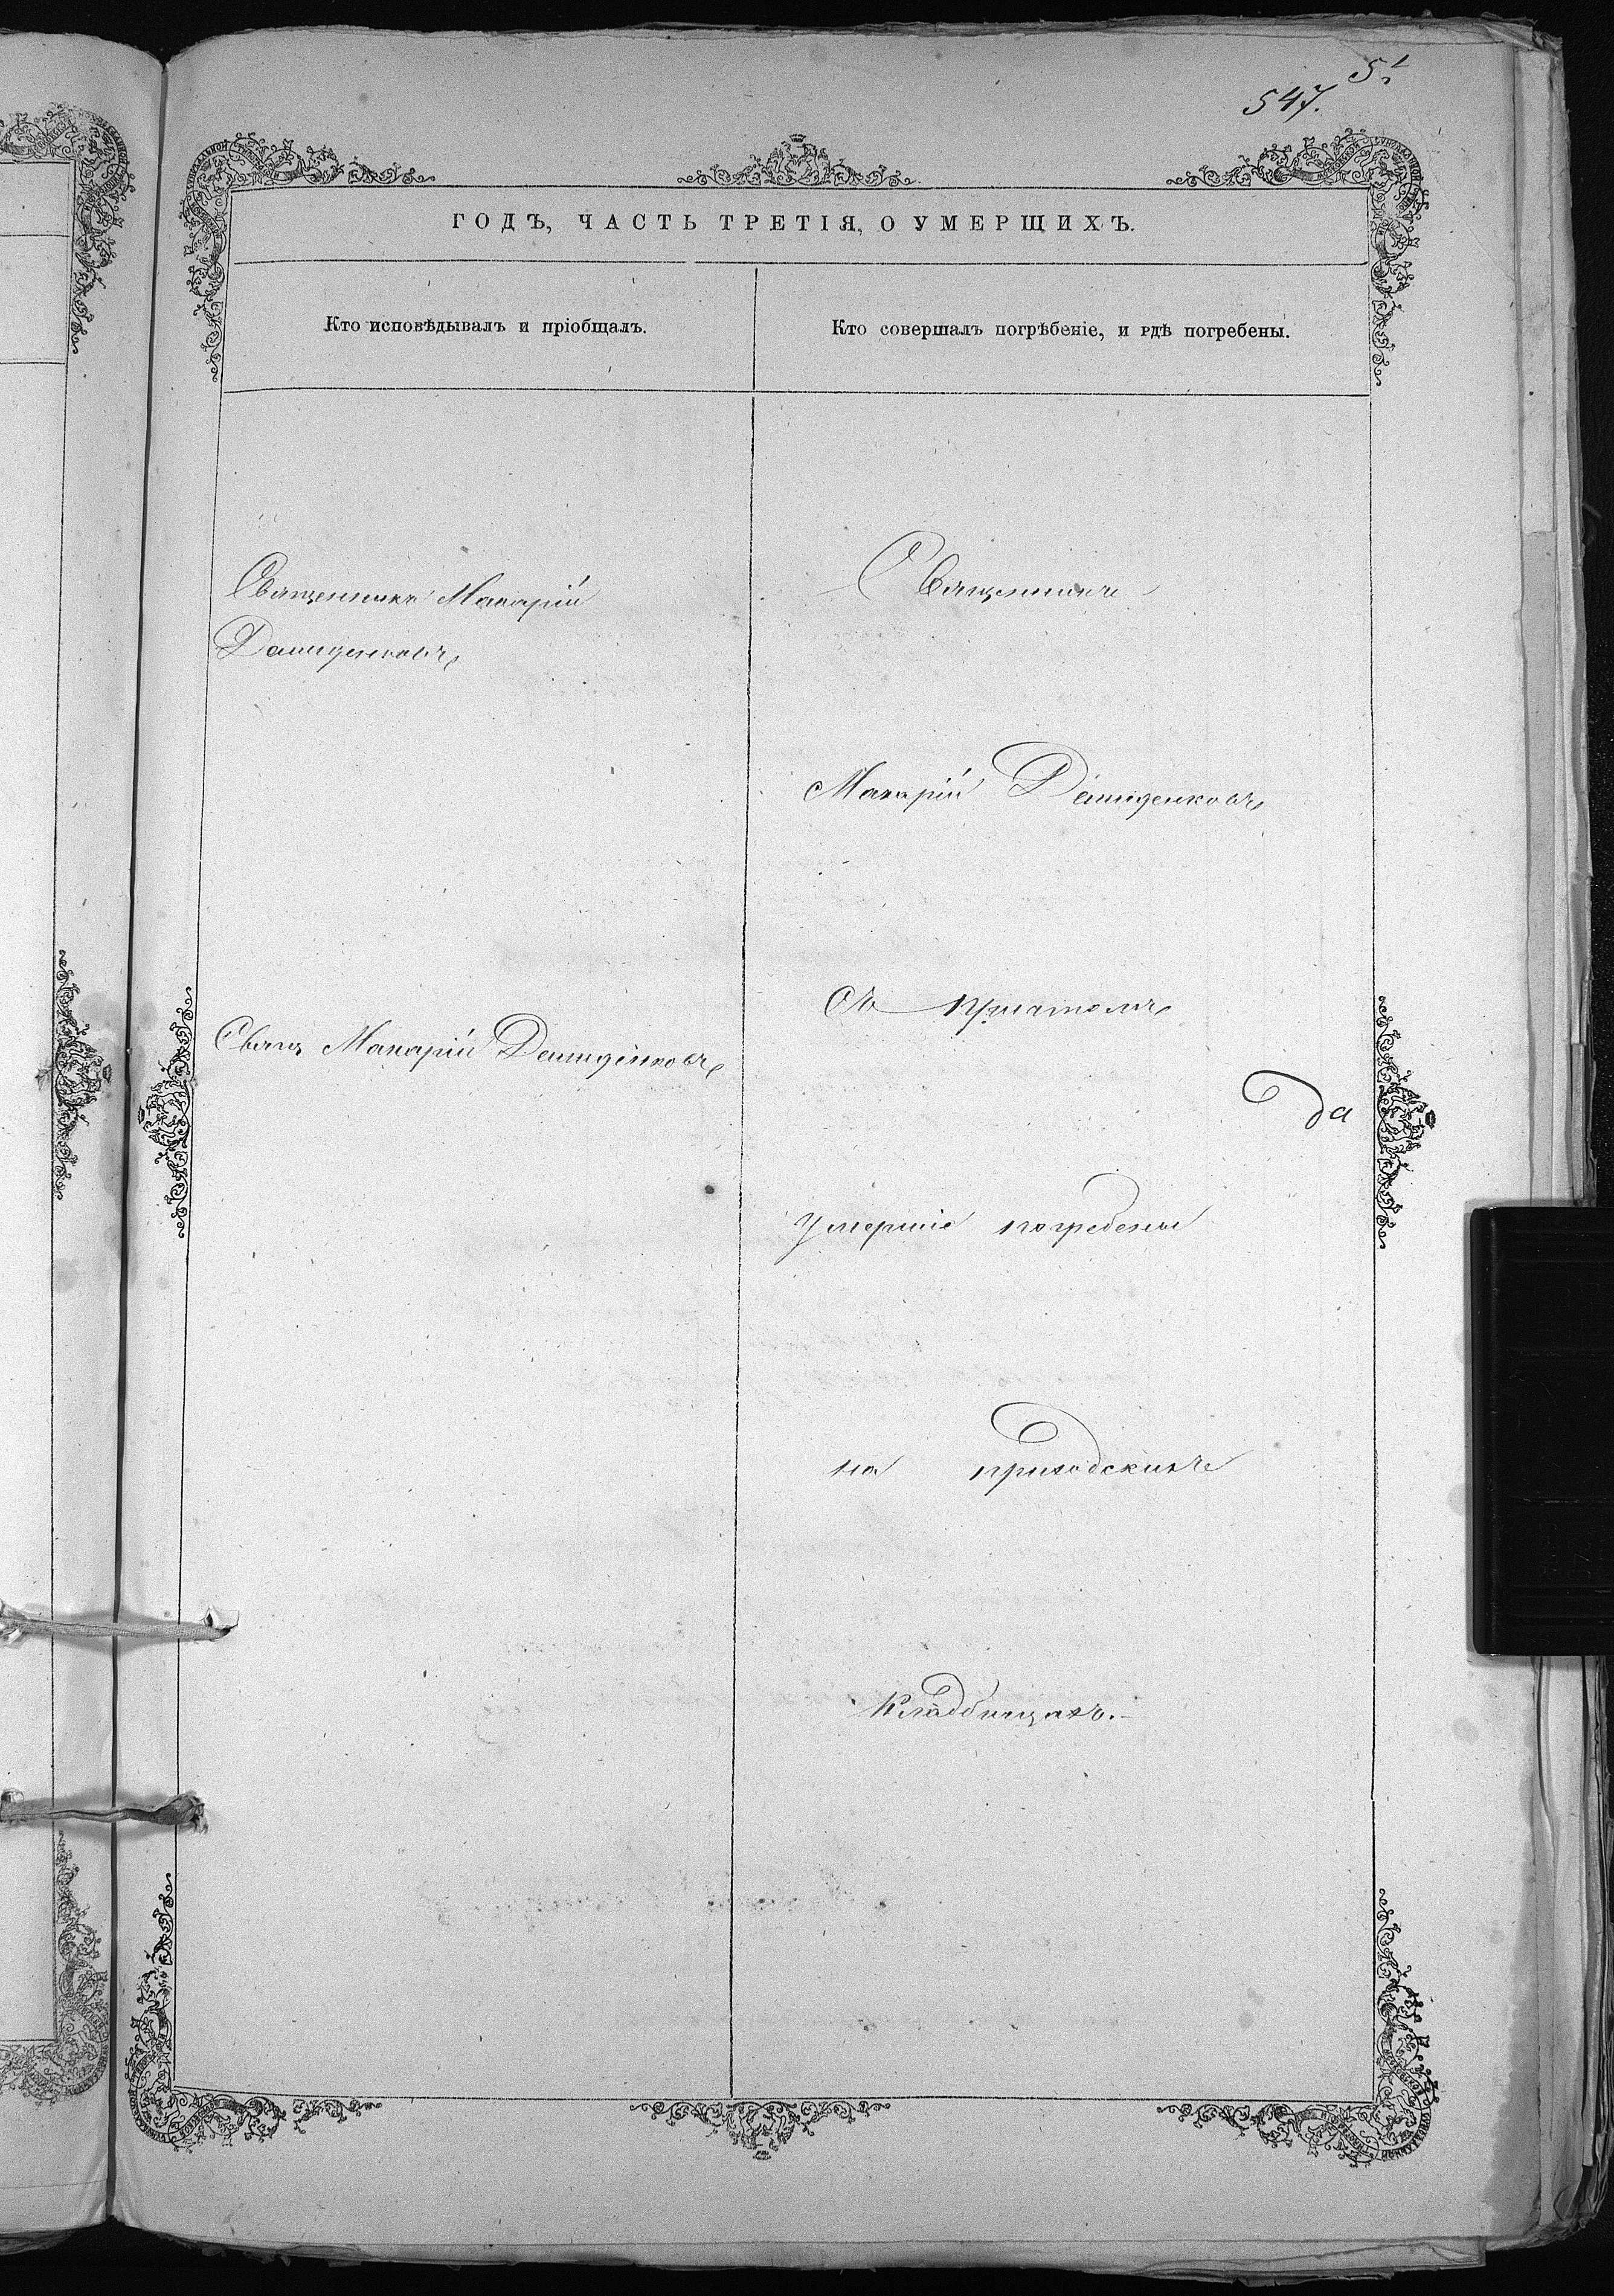 547.
ГОДЪ, ЧАСТЬ ТРЕТІЯ, О УМЕРШИХЪ.
Кто исповѣдывалъ и пріобщалъ.
Кто совершалъ погрѣбеніе, и гдѣ погребены.
Священникъ Макарій
Демиденковъ
Свящ Макарій Демиденковъ
Священникъ
Макарій Демиденковъ
Съ причтомъ
да
умершіе погребены
на приходскихъ
Кладбищахъ.